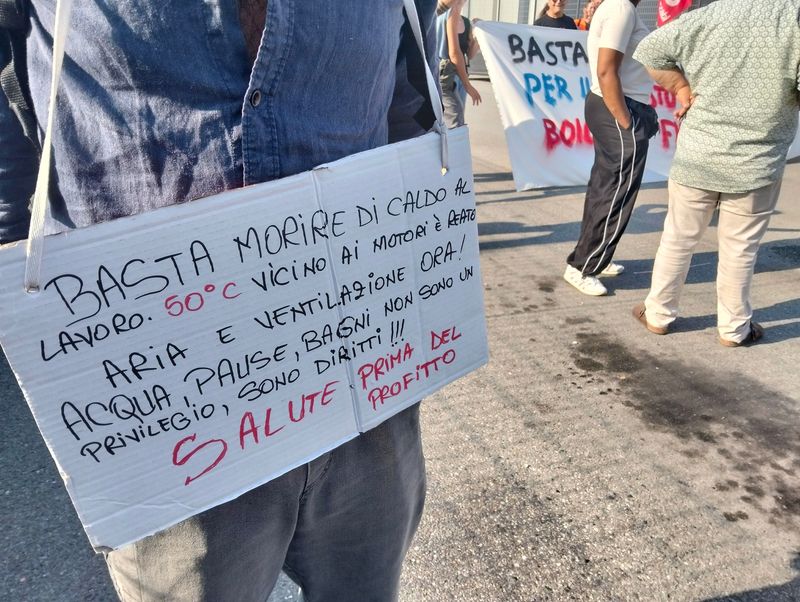 BASTA MORIRE DI CALDO AL
LAVORO. 50°C VICINO AI MOTORI È REATO
ARIA E VENTILAZIONE ORA!
ACQUA, PAUSE, BAGNI NON SONO UN
PRIVILEGIO, SONO DIRITTI!!!
SALUTE PRIMA DEL
PROFITTO
BASTA
PER